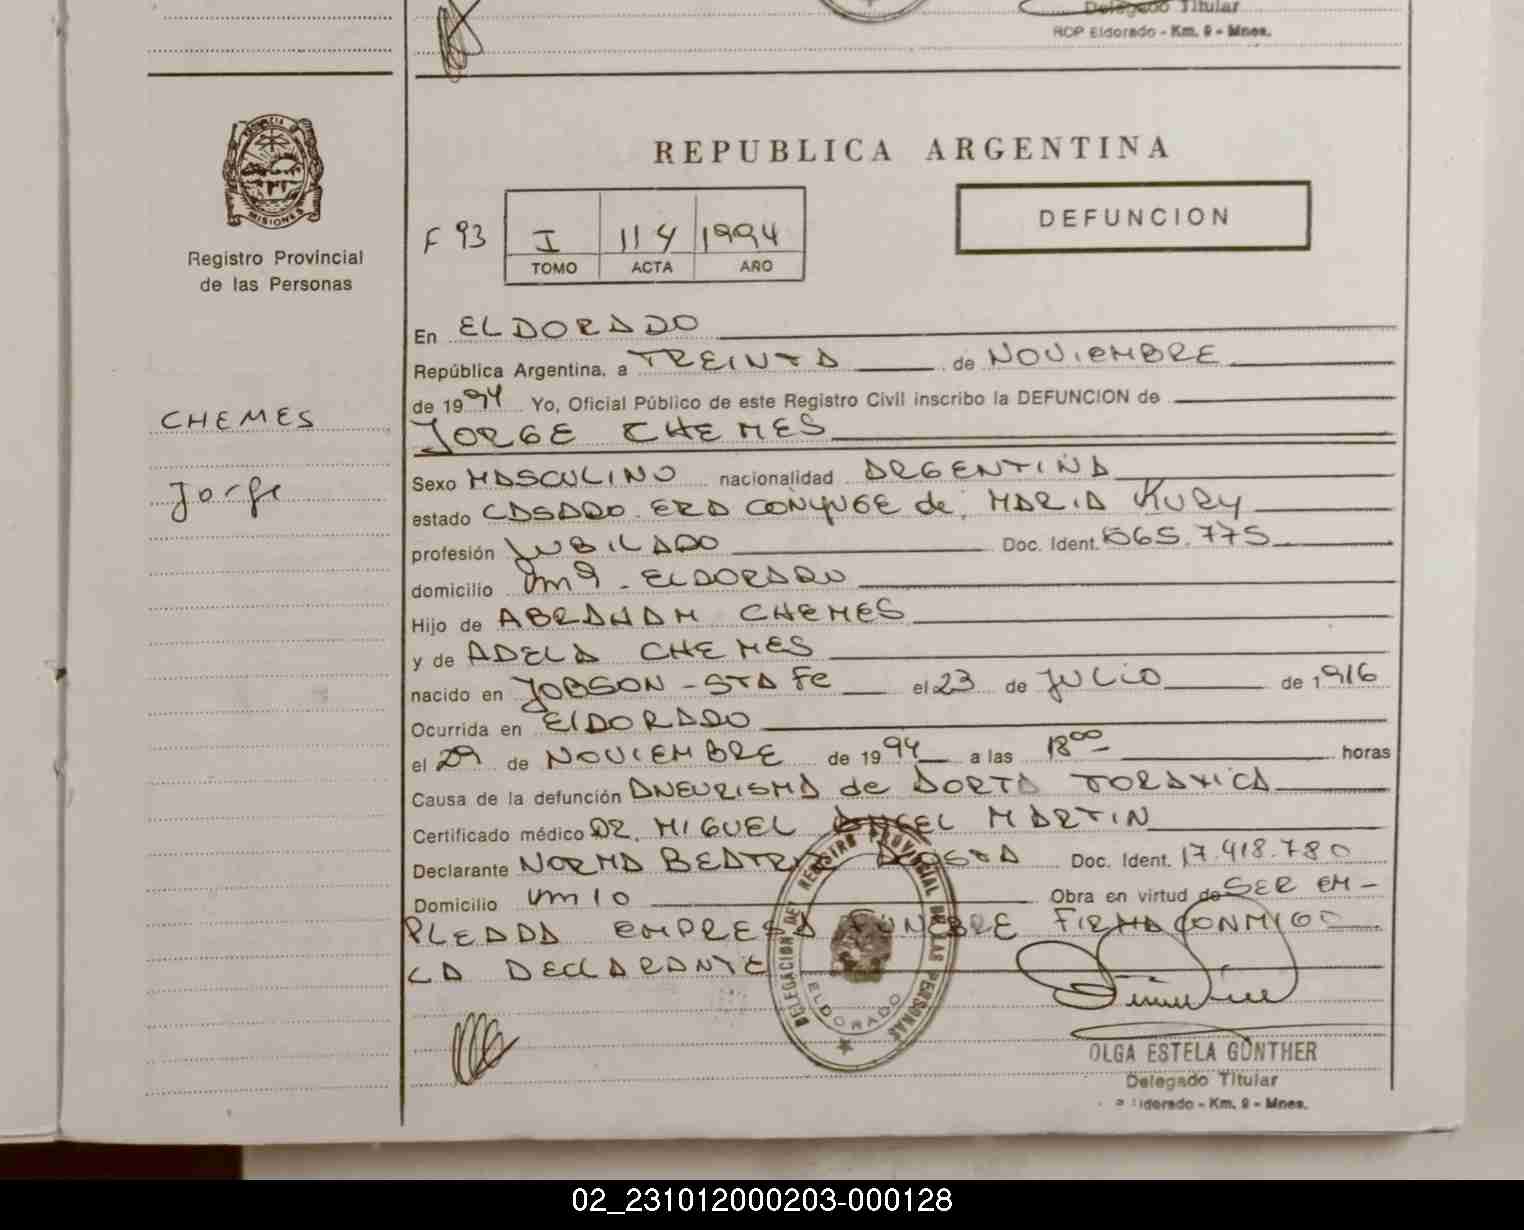 Delegado Titular
RCP Eldorado - Km. 9 - Mnes.
PROVINCIA
MISIONES
Registro Provincial
de las Personas
CHEMES
Jorge
REPUBLICA ARGENTINA
F 93 I 114 1994
TOMO ACTA AÑO
DEFUNCION
En ELDORADO
República Argentina, a TREINTA de NOVIEMBRE
de 1994 Yo, Oficial Público de este Registro Civil inscribo la DEFUNCION de
JORGE CHEMES
Sexo MASCULINO nacionalidad ARGENTINA
estado CASADO. ERA CONYUGE de. MARIA KURY
profesión JUBILADO Doc. Ident. 565.775
domicilio Km 9 - ELDORADO
Hijo de ABRAHAM CHEMES
y de ADELA CHEMES
nacido en JOBSON - STA FE el 23 de JULIO de 1916
Ocurrida en ElDORADO
el 29 de NOVIEMBRE de 1994 a las 18⁰⁰ horas
Causa de la defunción ANEURISMA de AORTA TORAXICA
Certificado médico DR. MIGUEL ANGEL MARTIN
Declarante NORMA BEATRIZ ACOSTA Doc. Ident. 17.418.780
Domicilio Km 10 Obra en virtud de SER EM-
PLEADA EMPRESA FUNEBRE FIRMA CONMIGO
LA DECLARANTE
DELEGACION DEL REGISTRO PROVINCIAL DE LAS PERSONAS
ELDORADO
OLGA ESTELA GÜNTHER
Delegado Titular
Eldorado - Km. 9 - Mnes.
02_231012000203-000128